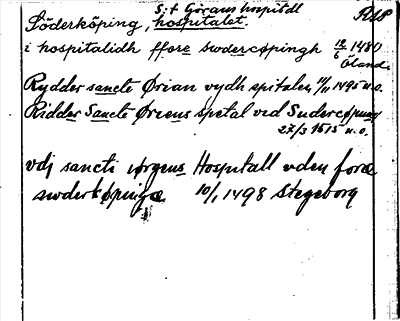 S:t Görans hospital
Söderköping, hospitalet.
i hospitalidh ffore swdercøpingh 12/6 1480
Öland
Rydder sancte Ørian vydh spitalen 11/11 1495 u.o.
Ridder Sancte Ørens spetal ved Sudercøpung
27/3 1515 u.o.
vdj sancti iørgens Hospitall vden foræ
swderkøpingæ 10/1 1498 Stegeborg